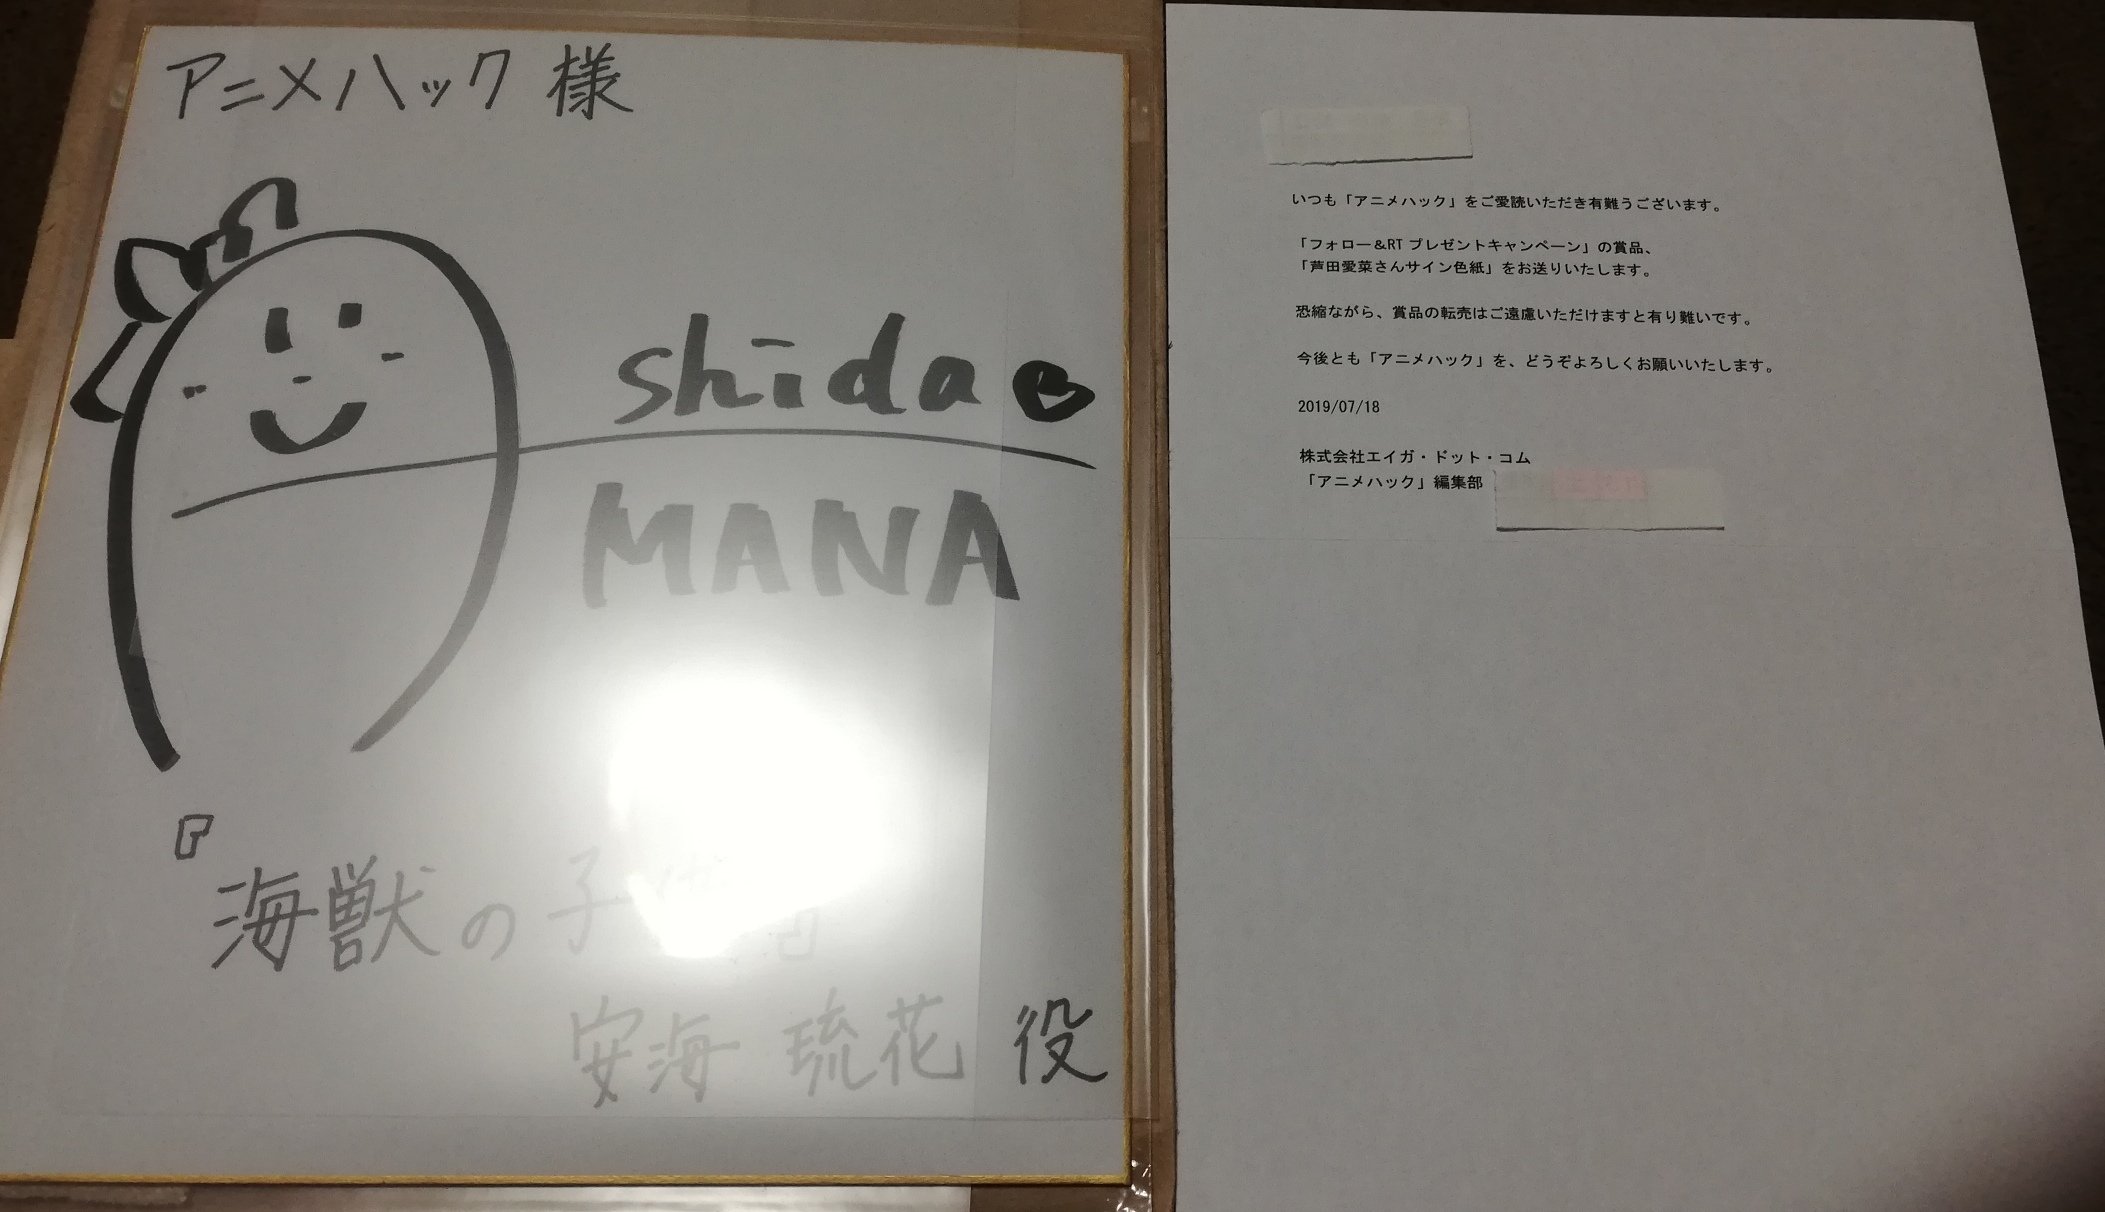 アニメハック 様
shida
MANA
『
海獣の子供
安海 琉花 役
いつも「アニメハック」をご愛読いただき有難うございます。
「フォロー＆RT プレゼントキャンペーン」の賞品、
「芦田愛菜さんサイン色紙」をお送りいたします。
恐縮ながら、賞品の転売はご遠慮いただけますと有り難いです。
今後とも「アニメハック」を、どうぞよろしくお願いいたします。
2019/07/18
株式会社エイガ・ドット・コム
「アニメハック」編集部